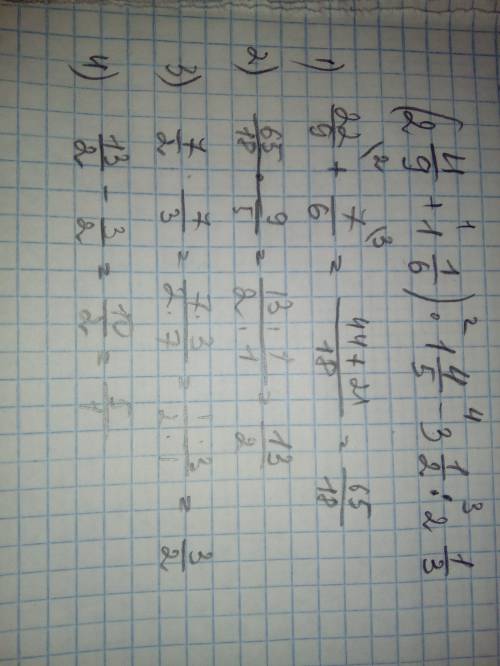 (2 4/9 + 1 1/6) · 1 4/5 - 3 1/2 : 2 1/3
1) 22/9 + 7/6 = (44+21)/18 = 65/18
2) 65/18 · 9/5 = (13·1)/(2·1) = 13/2
3) 7/2 · 7/3 = (7·3)/(2·7) = (1·3)/(2·1) = 3/2
4) 13/2 - 3/2 = 10/2 = 5/1